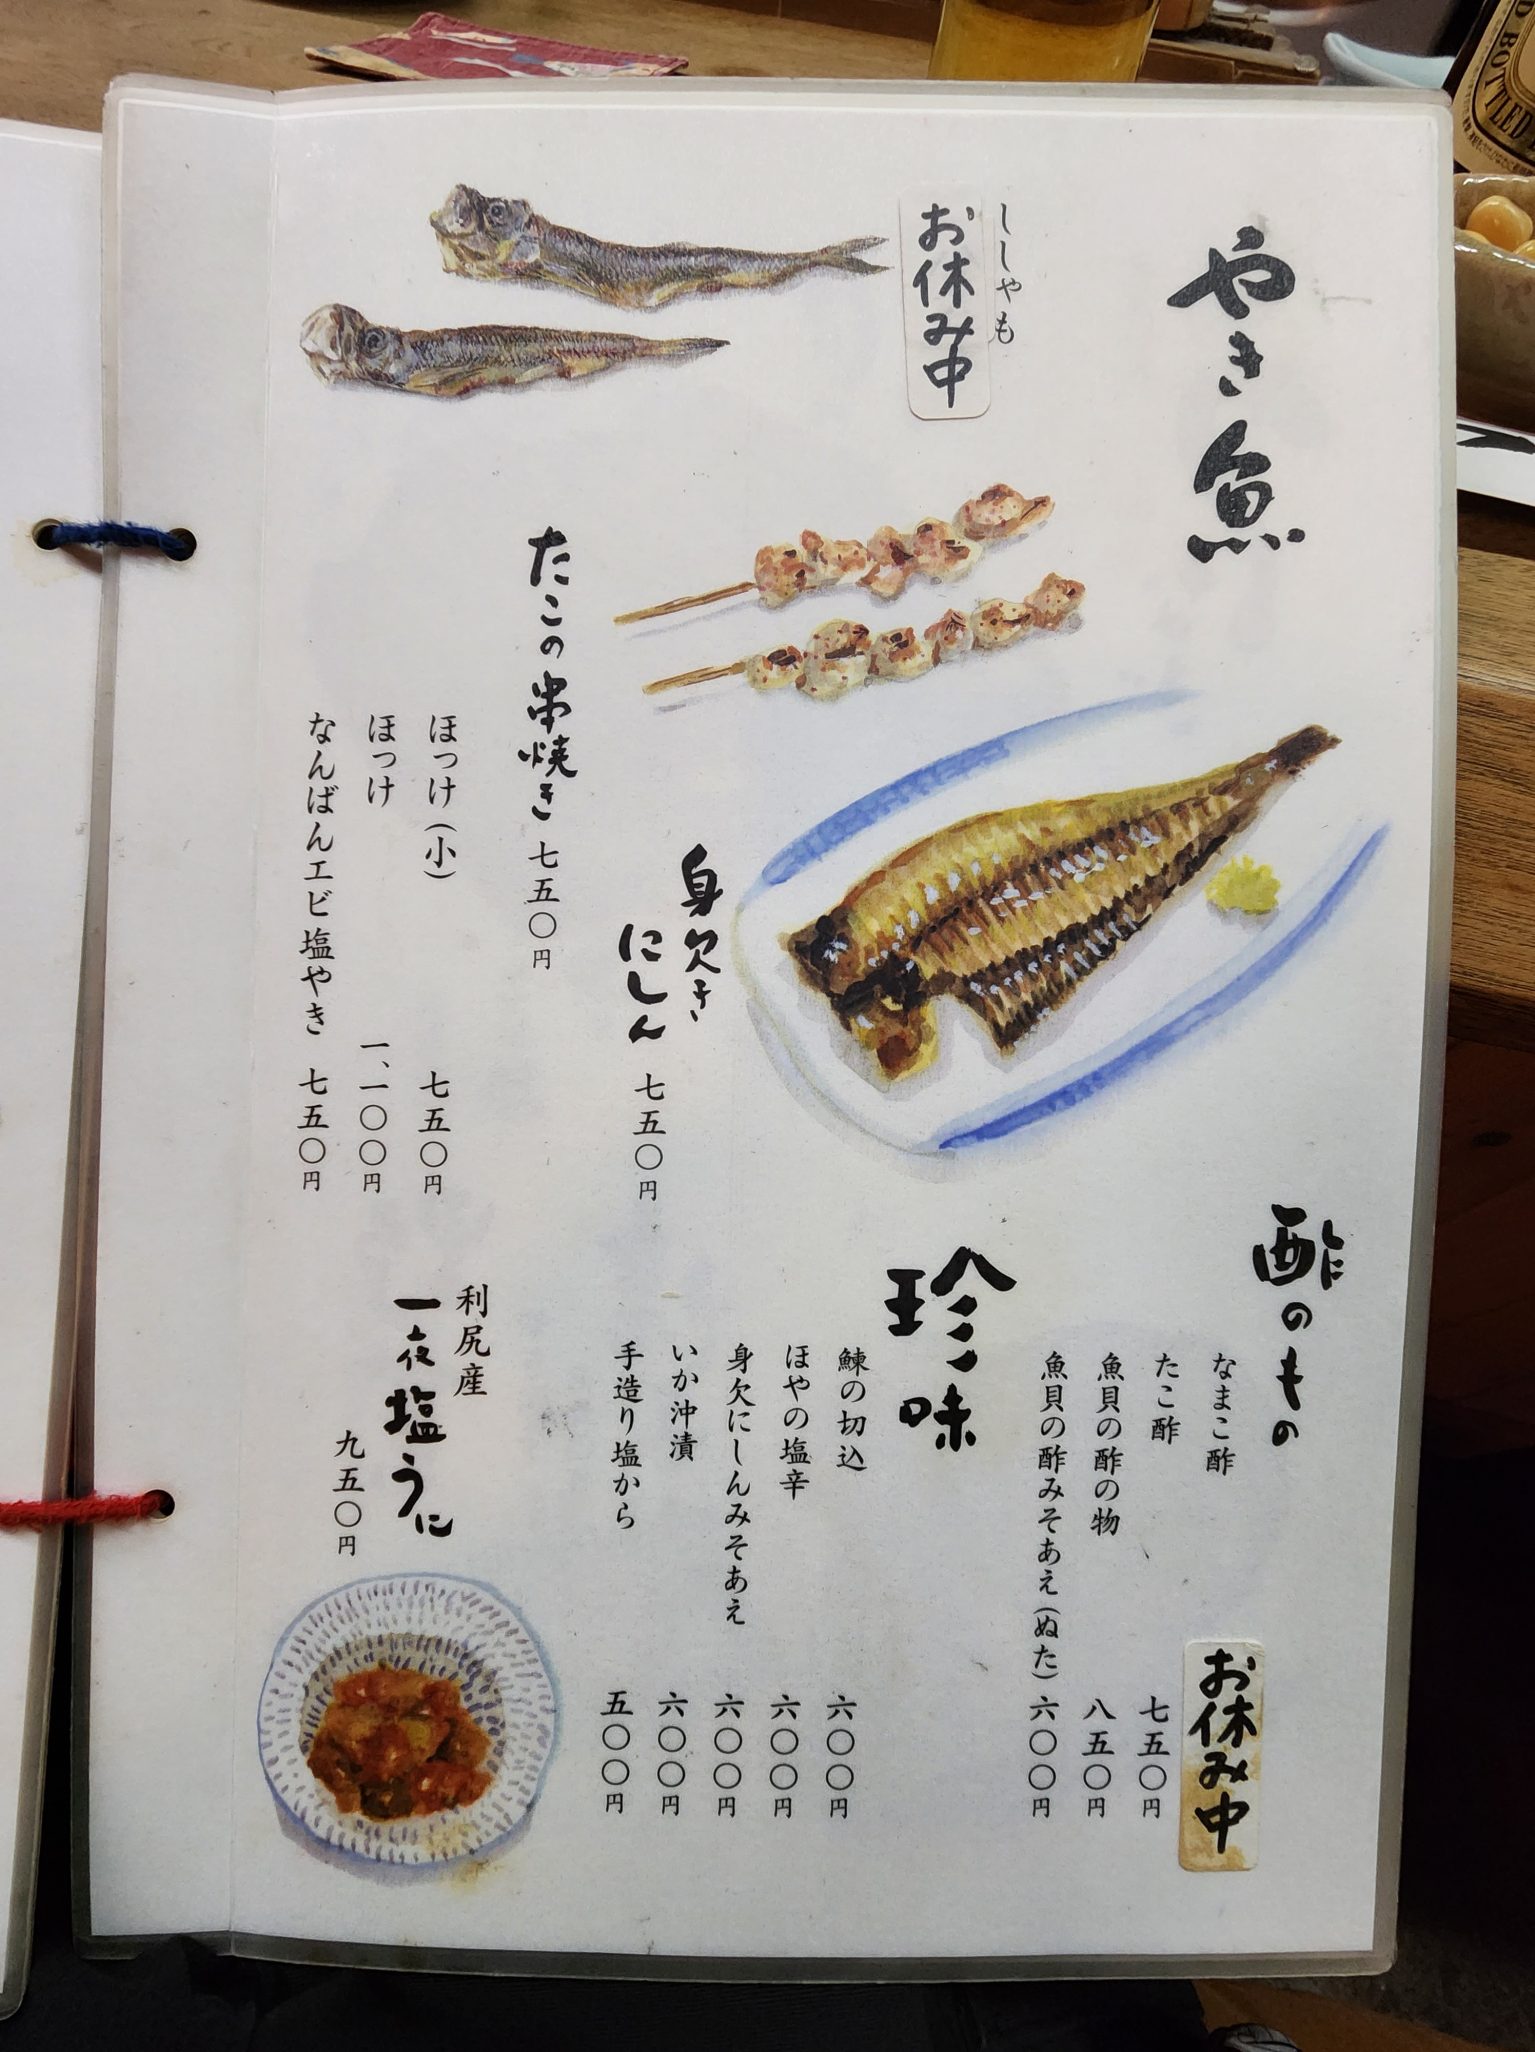 やき魚
ししゃも
お休み中
身欠き
にしん 七五〇円
たこの串焼き 七五〇円
ほっけ(小) 七五〇円
ほっけ 一、一〇〇円
なんばんエビ塩やき 七五〇円
酢のもの
なまこ酢 お休み中
たこ酢 七五〇円
魚貝の酢の物 八五〇円
魚貝の酢みそあえ(ぬた) 六〇〇円
珍味
鰊の切込 六〇〇円
ほやの塩辛 六〇〇円
身欠にしんみそあえ 六〇〇円
いか沖漬 六〇〇円
手造り塩から 五〇〇円
利尻産
一夜塩うに
九五〇円
BOTTLED